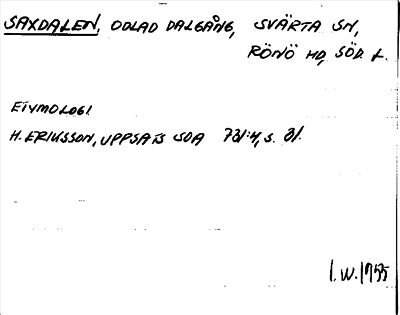 SAXDALEN, ODLAD DALGÅNG, SVÄRTA SN,
RÖNÖ HD, SÖD. L.
ETYMOLOGI
H. ERIKSSON, UPPSATS SOA 731:4, S. 31.
I.W. 1955